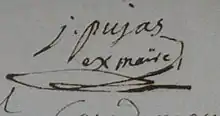 j. pujas
ex maire